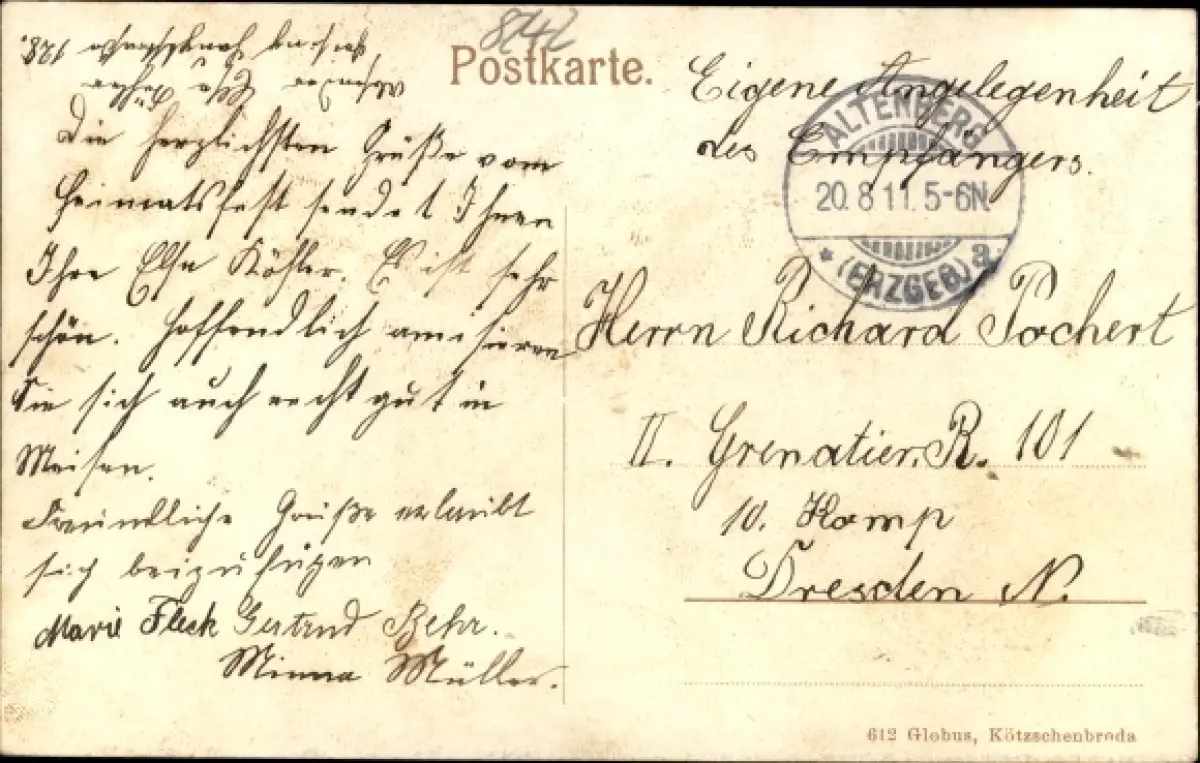 8742
Postkarte.
Eigene Angelegenheit
des Empfängers.
ALTENBERG
20.8.11.5-6N.
* (ERZGEB.) a
Herrn Richard Pochert
II. Grenatier. R. 101
10. Komp
Dresden N.
Die herzlichsten Grüße vom
Heimatsfest sendet Ihnen
Ihre Elsa Köhler. Es ist sehr
schön. Hoffendlich amisieren
Sie sich auch recht gut in
Meisen.
Freundliche Grüße erlaubt
sich beizufügen
Marie Fleck Gertrud Behr.
Minna Müller.
128.
612 Globus, Kötzschenbroda